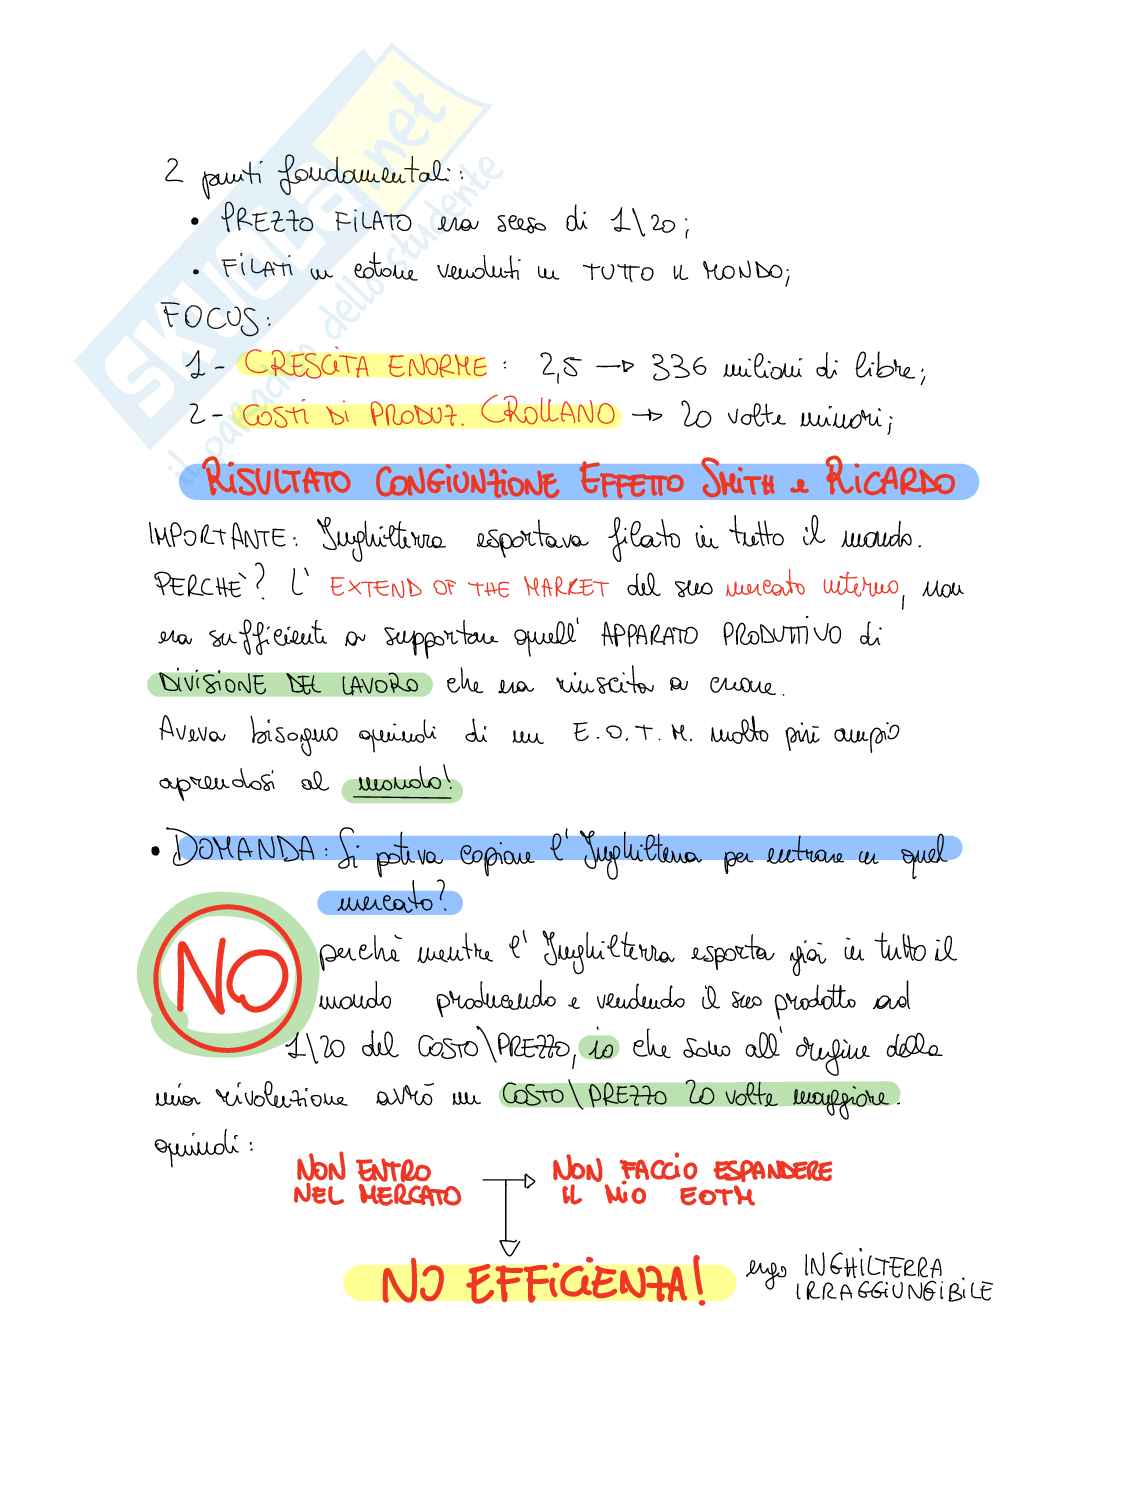 SKUOLA.net
il paradiso dello studente
2 punti fondamentali:
• PREZZO FILATO era sceso di 1\20;
• FILATI in cotone venduti in TUTTO IL MONDO;
FOCUS:
1- CRESCITA ENORME : 2,5 → 336 milioni di libre;
2- COSTI DI PRODUZ. CROLLANO → 20 volte minori;
RISULTATO CONGIUNZIONE EFFETTO SMITH e RICARDO
IMPORTANTE: Inghilterra esportava filato in tutto il mondo.
PERCHÈ? L' EXTEND OF THE MARKET del suo mercato interno, non
era sufficiente a supportare quell' APPARATO PRODUTTIVO di
DIVISIONE DEL LAVORO che era riuscita a creare.
Aveva bisogno quindi di un E.O.T.M. molto più ampio
aprendosi al mondo!
• DOMANDA: Si poteva copiare l' Inghilterra per entrare in quel
mercato?
NO perchè mentre l' Inghilterra esporta già in tutto il
mondo producendo e vendendo il suo prodotto ad
1\20 del COSTO\PREZZO, io che sono all' origine della
mia rivoluzione avrò un COSTO\PREZZO 20 volte maggiore.
quindi:
NON ENTRO → NON FACCIO ESPANDERE
NEL MERCATO IL MIO EOTM
NO EFFICIENZA! ergo INGHILTERRA
IRRAGGIUNGIBILE